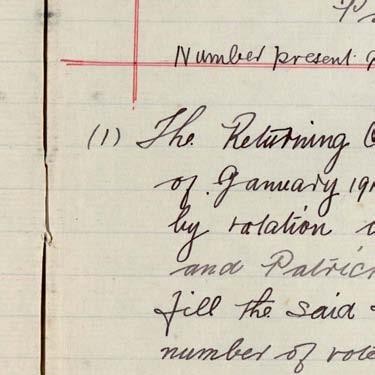 Number present
(1) The Returning
of January 19
by rotation
and Patric
fill the said
number of vote